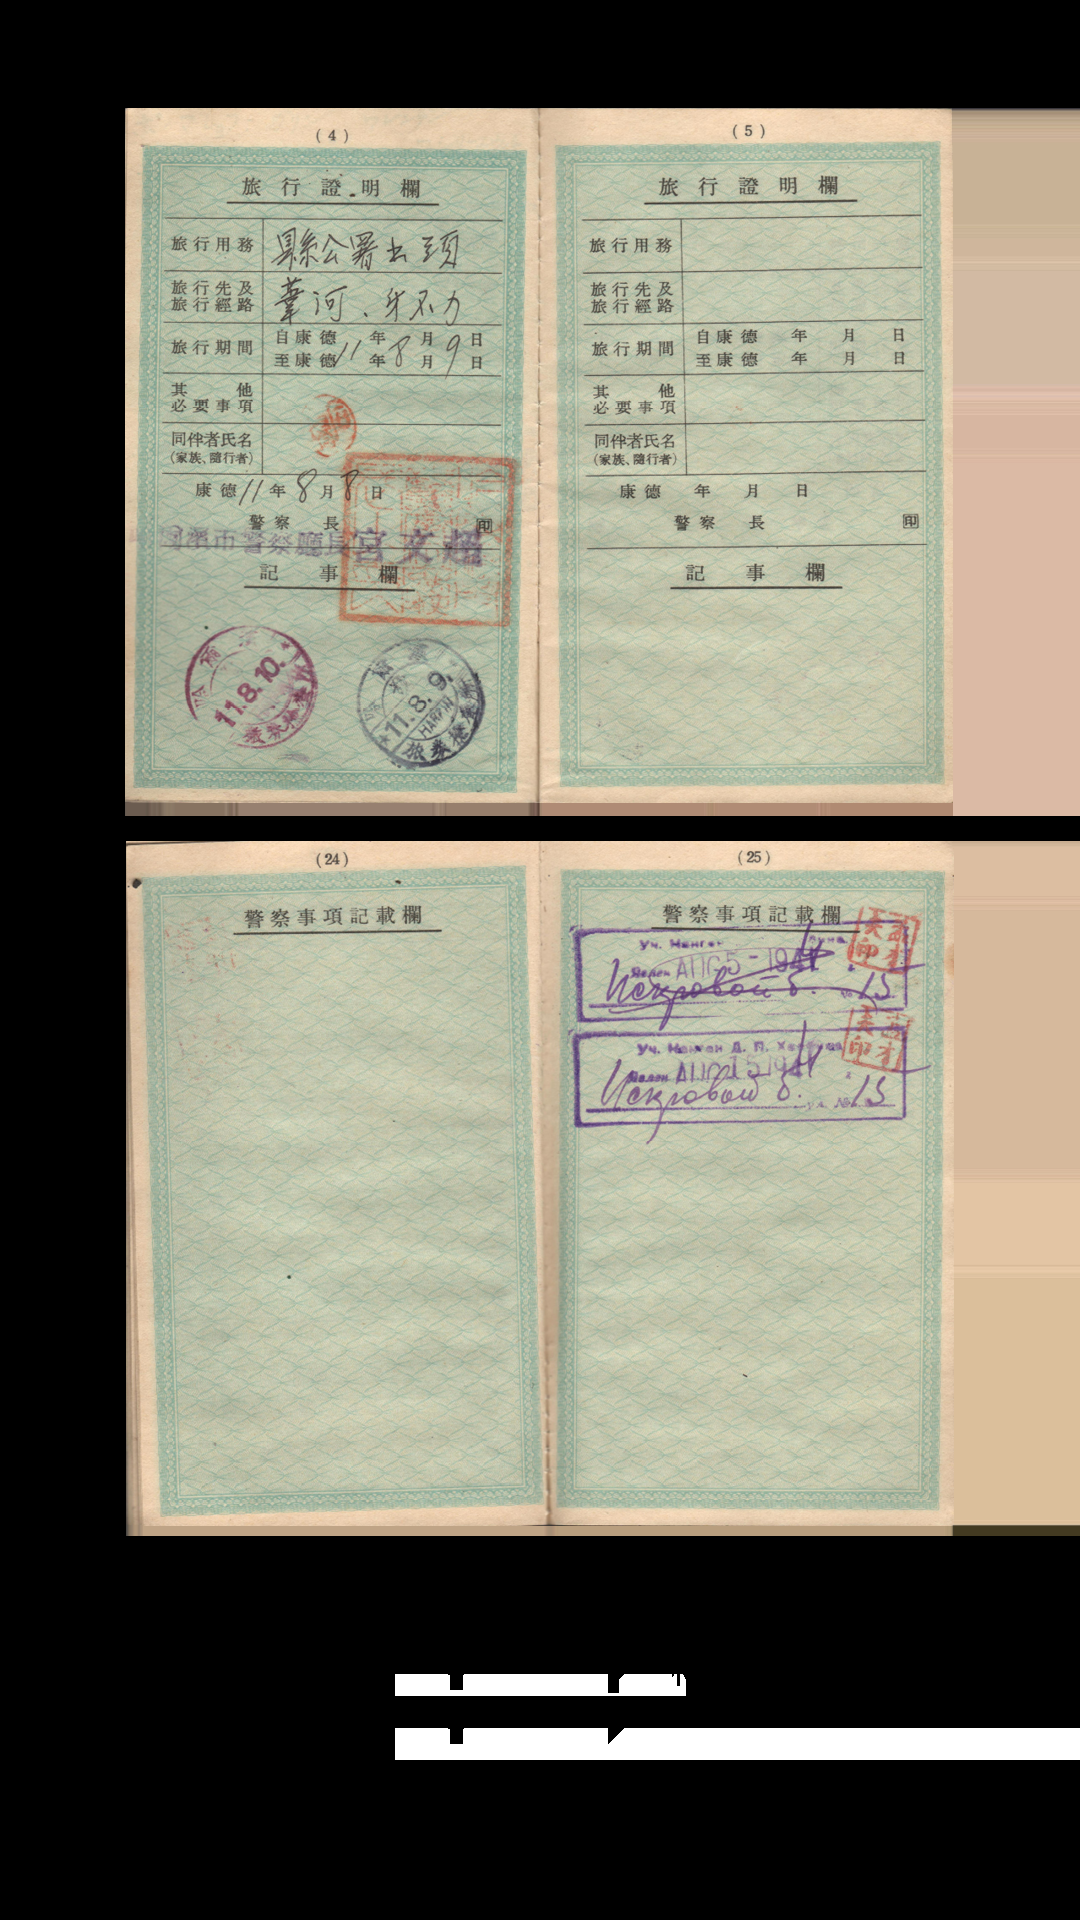 (4)
旅行證明欄
旅行用務 縣公署出頭
旅行先及旅行經路 葦河、牙不力
旅行期間 自康德 年 月 日
至康德11年8月9日
其他必要事項
同伴者氏名
(家族、隨行者)
康德11年8月8日
警察長 印
濱市警察廳長宮文超
記事欄
哈爾濱
11.8.10.
哈爾濱
11.8.9.
HARPIN
(5)
旅行證明欄
旅行用務
旅行先及旅行經路
旅行期間 自康德 年 月 日
至康德 年 月 日
其他必要事項
同伴者氏名
(家族、隨行者)
康德 年 月 日
警察長 印
記事欄
(24)
警察事項記載欄
(25)
警察事項記載欄
Уч. Нанган
Явлен АПГ 5 - 194
Искровой 15
Уч. Нанган Д. П.
Явлен АПГ 15 194
Искровой 15